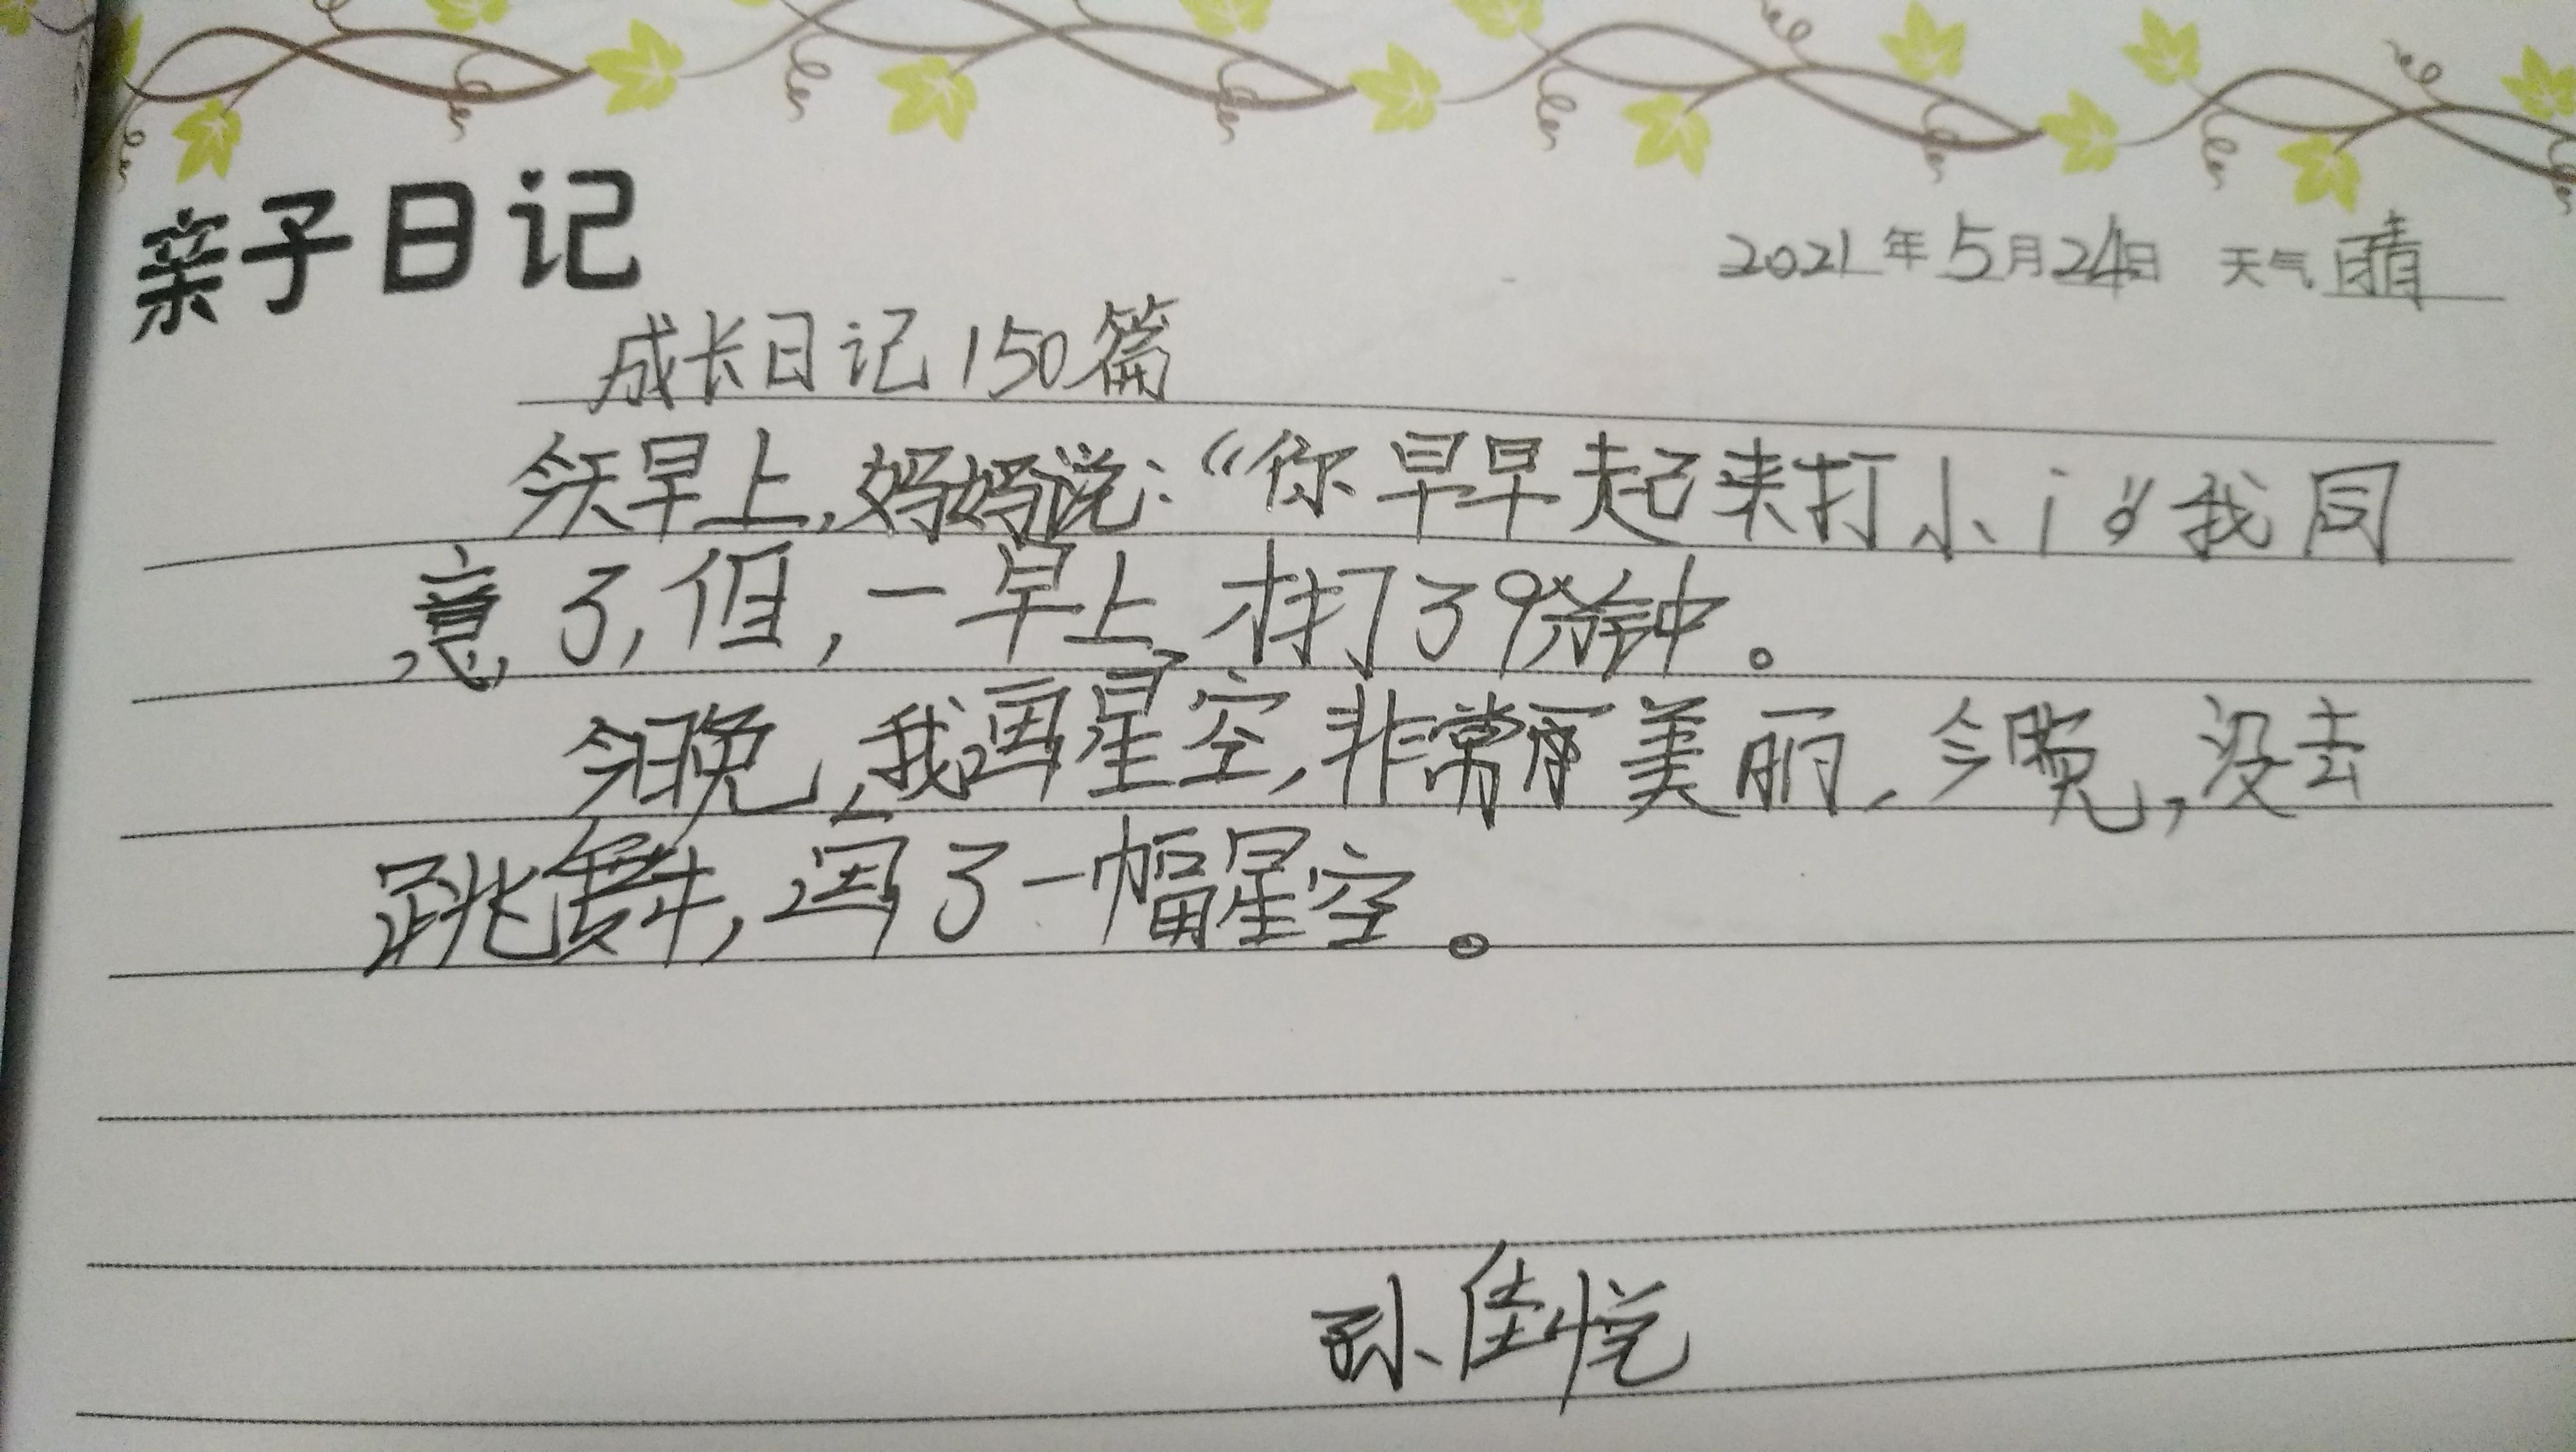 亲子日记
2021年5月24日 天气 晴
成长日记150篇
今天早上,妈妈说:“你早早起来打小i。”我同
意了,但,一早上,才打了9分钟。
今晚,我画星空,非常美丽,今晚,没去
跳舞,画了一幅星空。
孙佳悦